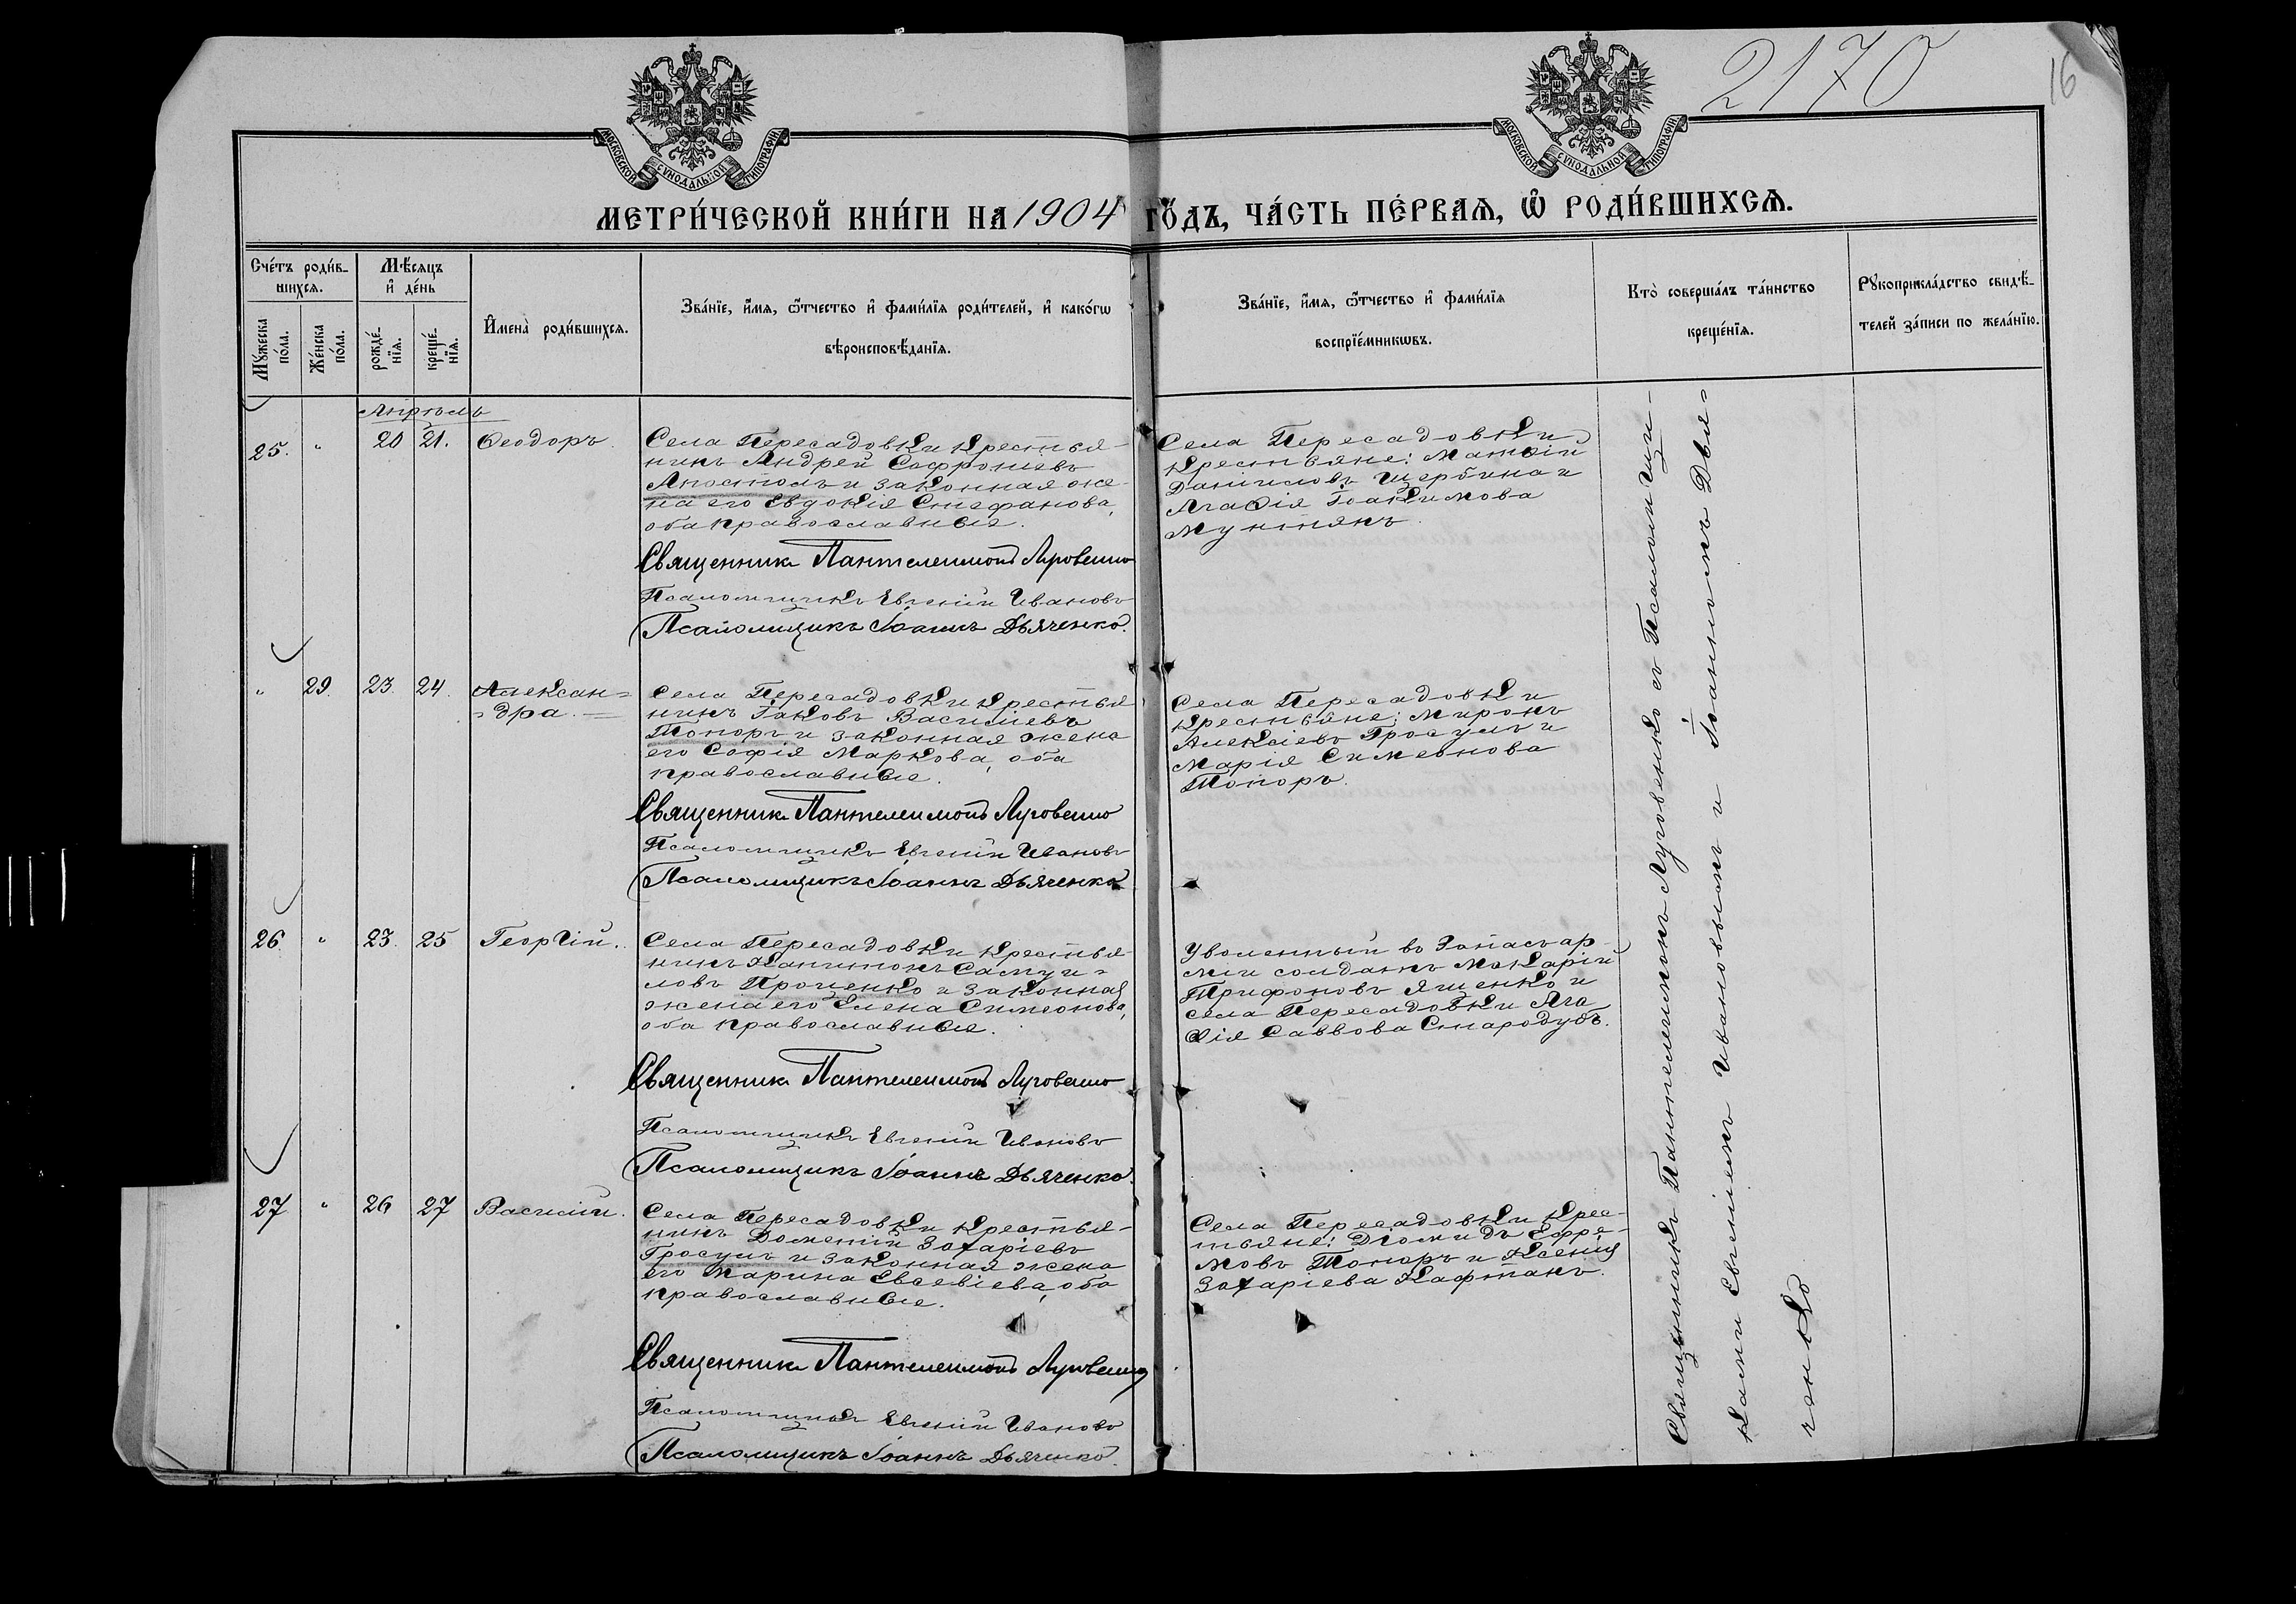 2170
16
МОСКОВСКОЙ СѴНОДАЛЬНОЙ ТИПОГРАФІИ
МОСКОВСКОЙ СѴНОДАЛЬНОЙ ТИПОГРАФІИ
МЕТРИ́ЧЕСКОЙ КНИ́ГИ НА 1904 ГО́ДЪ, ЧА́СТЬ ПЕ́РВАѦ, Ѡ҆ РОДИ́ВШИХСѦ.
Сче́тъ роди́в-
шихсѧ.
Мꙋ́жеска
по́ла.
Же́нска
по́ла.
Мѣ́сѧцъ
и҆ де́нь
рожде́-
нїѧ.
креще́-
нїѧ.
И҆мена̀ роди́вшихсѧ.
Зва́нїе, и҆́мѧ, ѻ҆́тчество и҆ фами́лїѧ роди́телей, и҆ како́гѡ
вѣроисповѣ́данїѧ.
Зва́нїе, и҆́мѧ, ѻ҆́тчество и҆ фами́лїѧ
воспрїе́мникѡвъ.
Кто̀ соверша́лъ та́инство
креще́нїѧ.
Рꙋкоприкла́дство свидѣ́-
телей за́писи по жела́нїю.
Апрѣль
25. " 20 21. Ѳеодоръ.
Села Пересадовки крестья-
нинъ Андрей Софроніевъ
Апостолъ и законная же-
на его Евдокія Стефанова,
оба православные.
Священникъ Пантелеимонъ Луговенко
Псаломщикъ Евгеній Ивановъ
Псаломщикъ Іоаннъ Дьяченко.
Села Пересадовки
крестьяне: Матѳій
Даниловъ Щербина и
Агаѳія Іоакимова
Мунтянъ.
" 29. 23. 24. Алексан-
-дра.
Села Пересадовки крестья-
нинъ Іаковъ Василіевъ
Топоръ и законная жена
его Софія Маркова, оба
православные.
Священникъ Пантелеимонъ Луговенко
Псаломщикъ Евгеній Ивановъ
Псаломщикъ Іоаннъ Дьяченко
Села Пересадовки
крестьяне: Миронъ
Алексіевъ Гросулъ и
Марія Симеонова
Топоръ.
26. " 23. 25 Георгій.
Села Пересадовки крестья-
нинъ Капитонъ Самуи-
ловъ Проценко и законная
жена его Елена Симеонова,
оба православные.
Священникъ Пантелеимонъ Луговенко
Псаломщикъ Евгеній Ивановъ
Псаломщикъ Іоаннъ Дьяченко.
Уволенный въ запасъ ар-
міи солдатъ Макарій
Трифоновъ Яценко и
села Пересадовки Ага-
ѳія Саввова Стародубъ.
27 " 26 27 Василій.
Села Пересадовки крестья-
нинъ Дометій Захаріевъ
Гросулъ и законная жена
его Марина Евсевіева, оба
православные.
Священникъ Пантелеимонъ Луговенко
Псаломщикъ Евгеній Ивановъ
Псаломщикъ Іоаннъ Дьяченко.
Села Пересадовки крес-
тьяне: Діомидъ Ефре-
мовъ Топоръ и Ксенія
Захаріева Кафтанъ.
Священникъ Пантелеимонъ Луговенко съ Псаломщи-
ками Евгеніемъ Ивановымъ и Іоанномъ Дья-
ченко